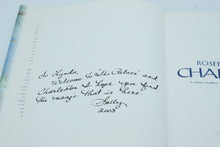 To Lynda,
Welcome to "The Palace" and
Charleston I hope you find
the magic that is here
Sally
2003
ROSE
CHA